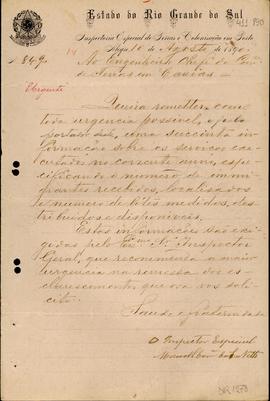 Estado do Rio Grande do Sul
Inspectoria Especial de Terras e Colonisação em Porto
Alegre 10 de Agosto de 1890
Nº 849
Ao Engenheiro Chefe da Com.
de Terras em Caxias
Urgente
Queira remetter, com
toda urgencia possivel, e pelo
portador deste, uma succinta in
formação sobre os serviços exe
cutados no corrente anno, espe
cificando o numero de immi
grantes recebidos, localisados
e numero de lotes medidos, des
tribuidos e disponiveis.
Estas informações são exi
gidas pelo Exmo. Sr. Inspector
Geral, que recommenda a maior
urgencia na remessa dos es
clarecimentos que ora vos soli
cito.
Saude e fraternidade
O Inspector Especial
Manoel